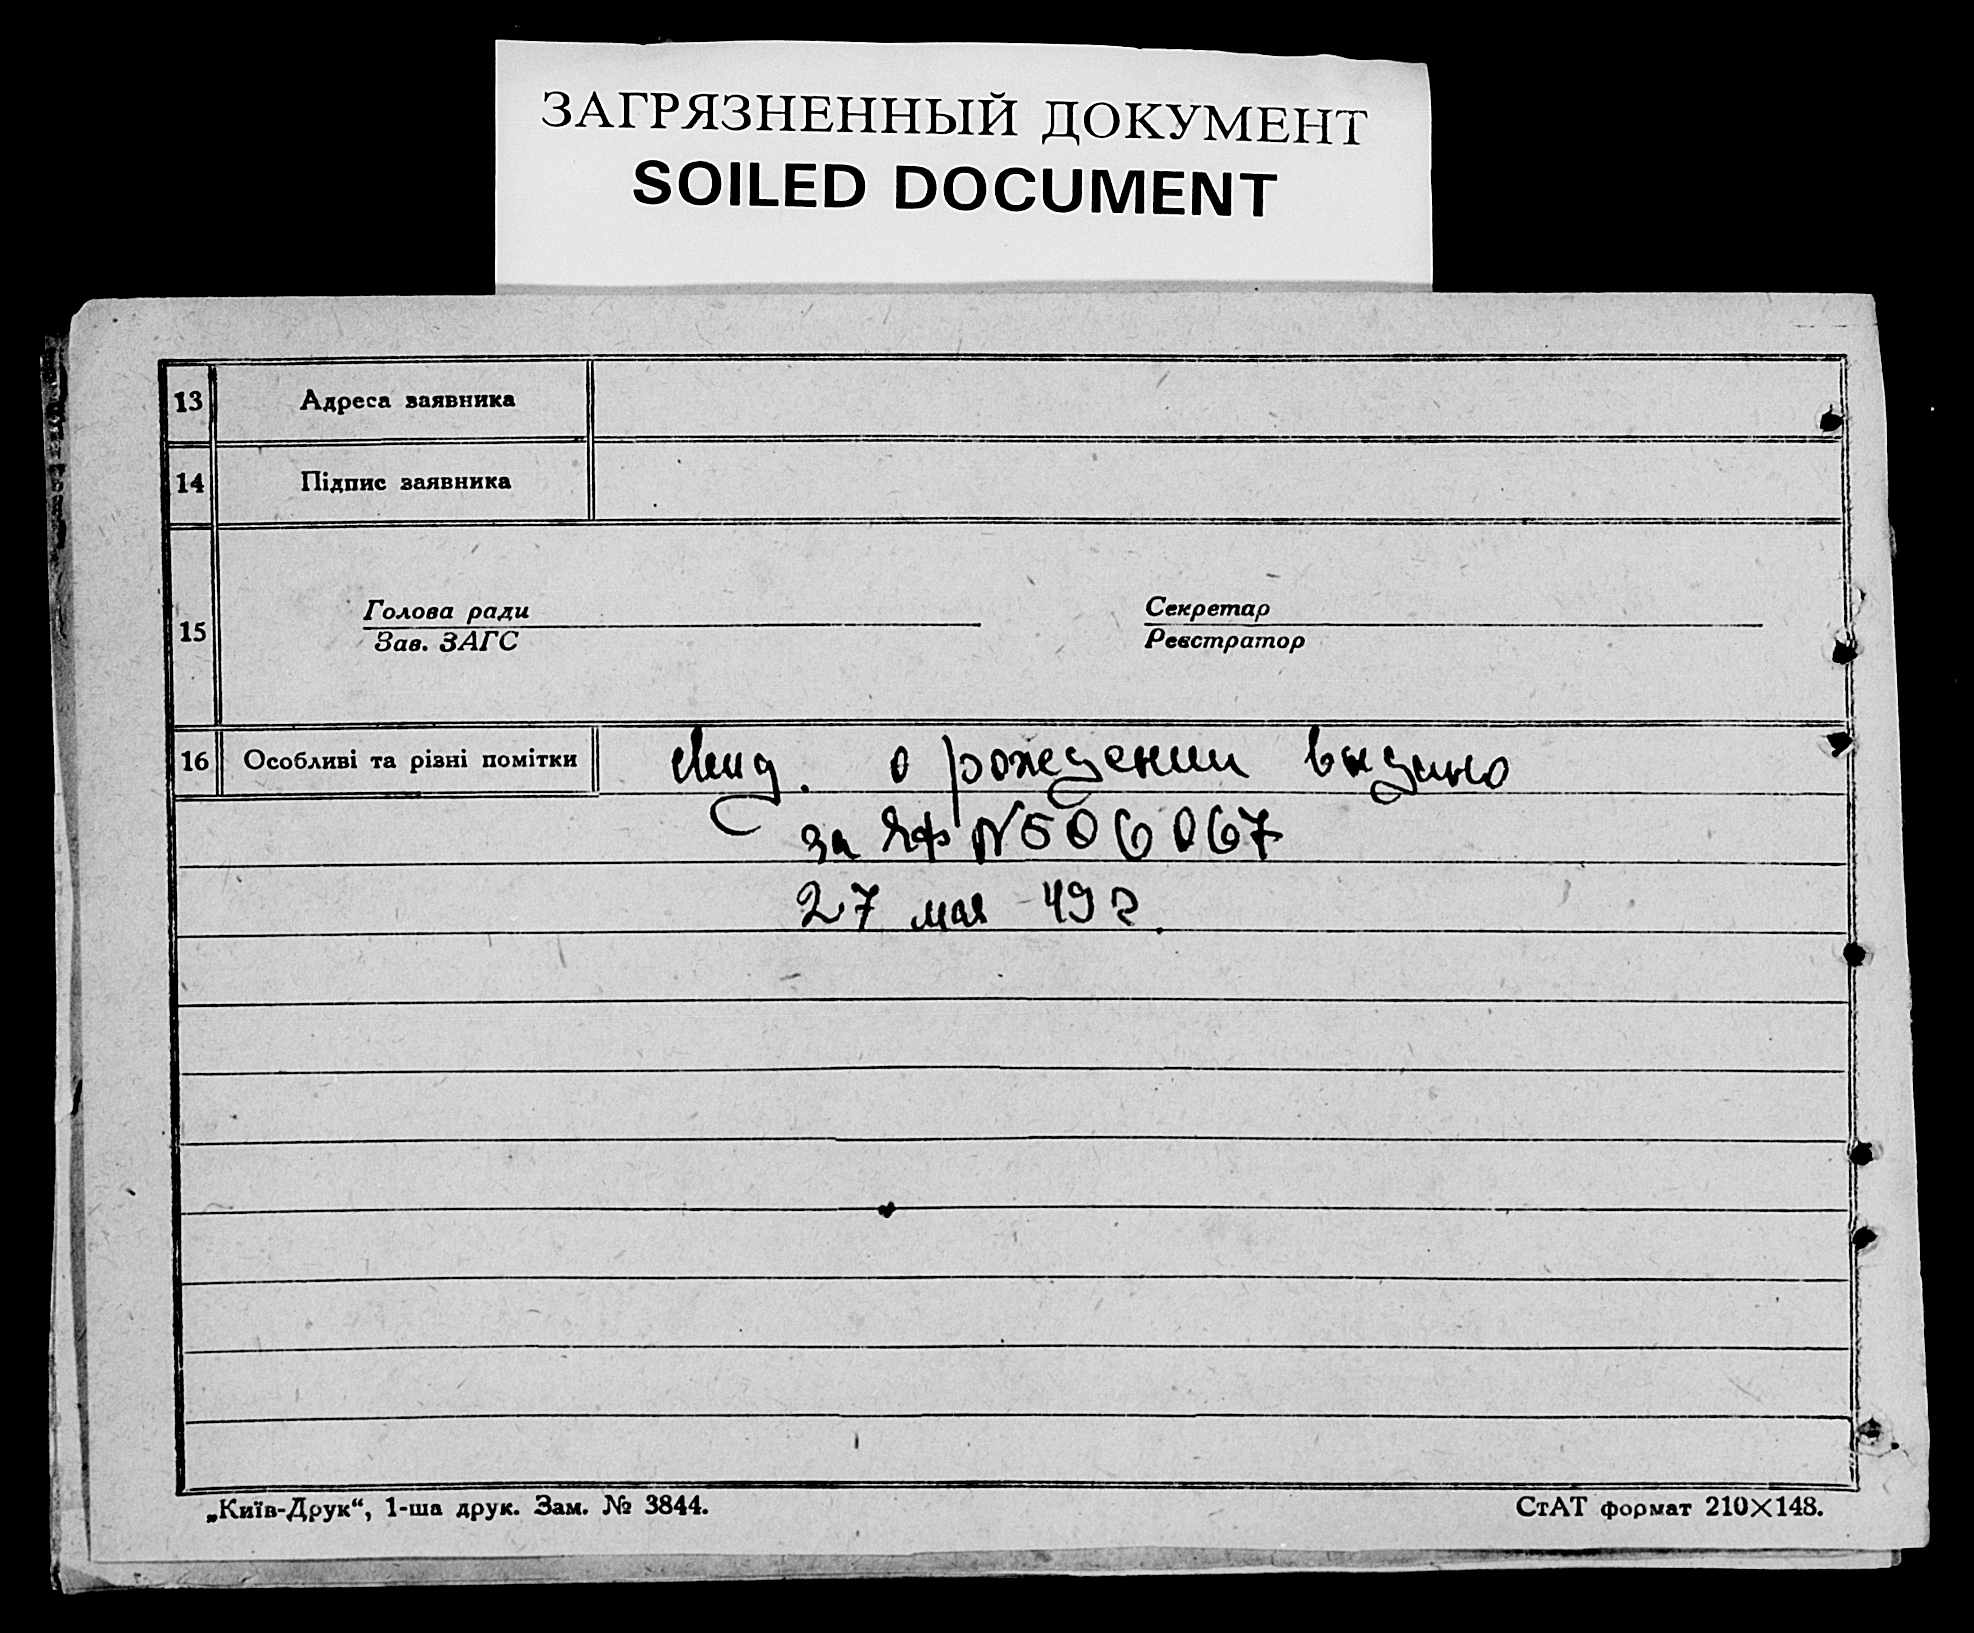 ЗАГРЯЗНЕННЫЙ ДОКУМЕНТ
SOILED DOCUMENT
13 Адреса заявника
14 Підпис заявника
15
Голова ради Секретар
Зав. ЗАГС Реєстратор
16 Особливі та різні помітки
Свид. о рождении выдано
за ЯФ N506067
27 мая 49 г.
„Київ-Друк“, 1-ша друк. Зам. № 3844. СтАТ формат 210×148.